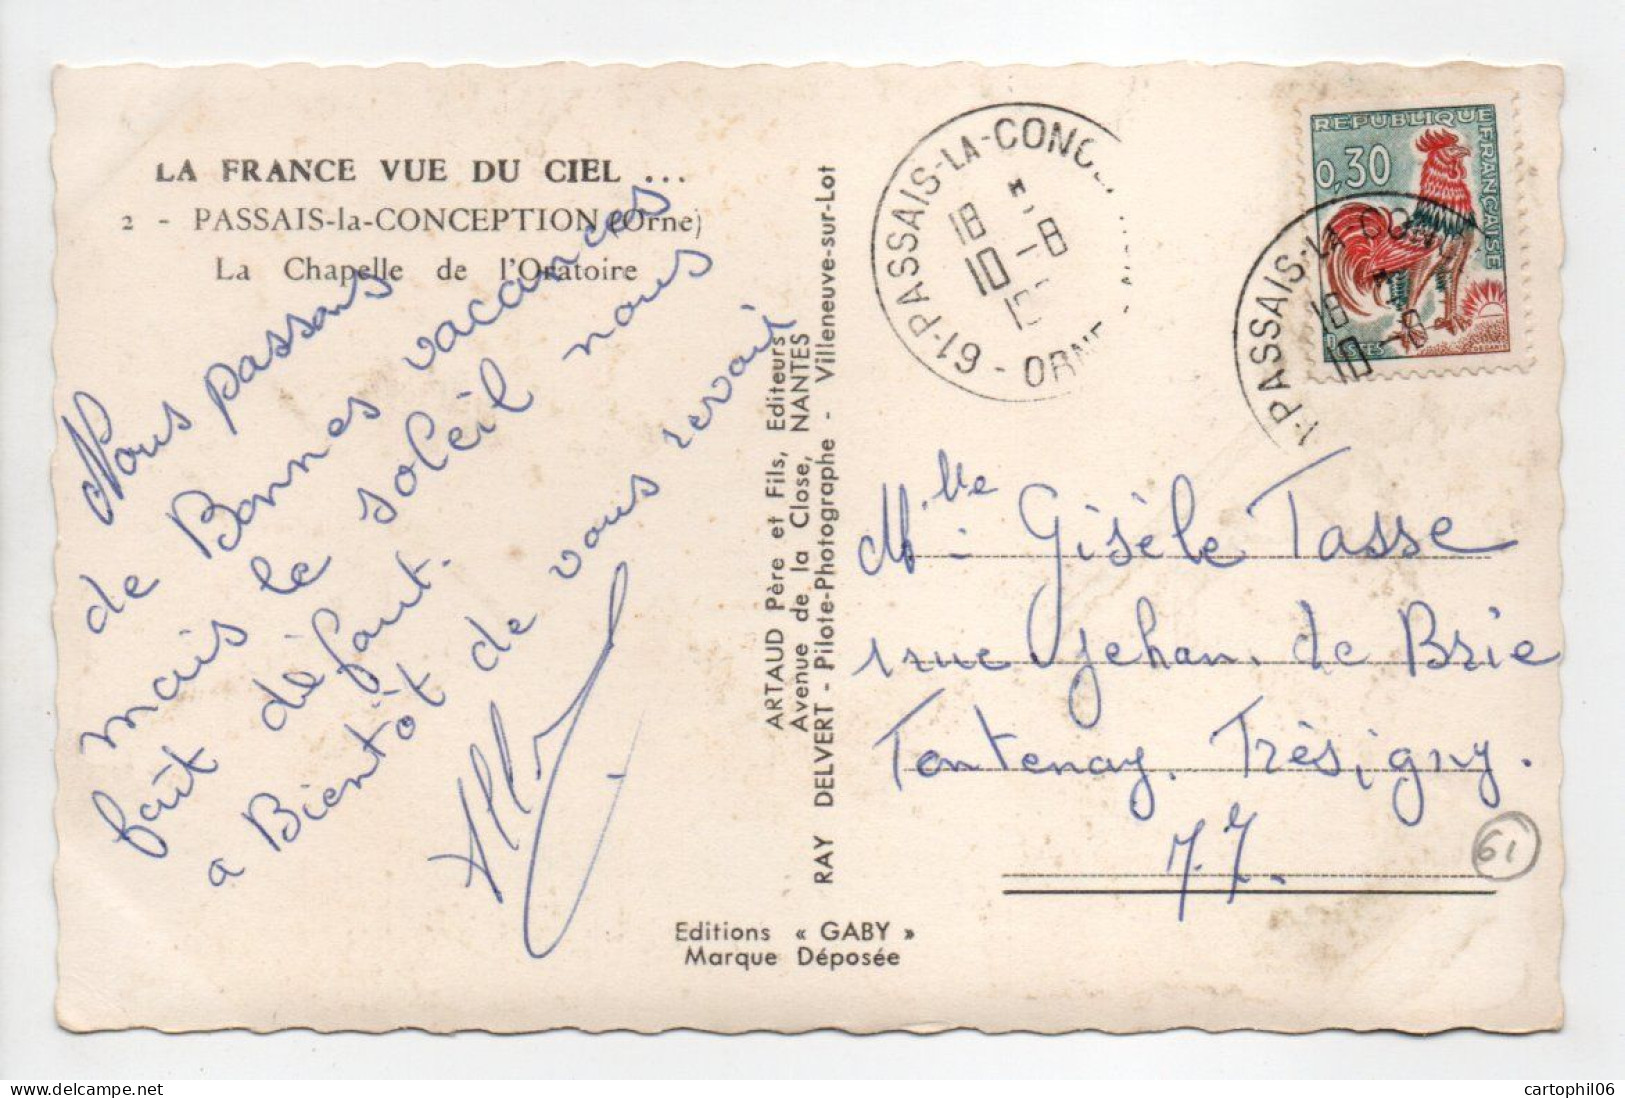 LA FRANCE VUE DU CIEL ...
2 - PASSAIS-la-CONCEPTION (Orne)
La Chapelle de l'Oratoire
Nous passons
de Bonnes vacances
mais le soleil nous
fait défaut.
a Bientôt de vous revoir
ARTAUD Père et Fils, Editeurs
Avenue de la Close, NANTES
RAY DELVERT - Pilote-Photographe - Villeneuve-sur-Lot
Editions « GABY »
Marque Déposée
61-PASSAIS-LA-CONC
18 H
10 -8
ORNE
REPUBLIQUE FRANÇAISE
0,30
POSTES
1-PASSAIS-LA CON
18 H
10 -8
Mlle Gisèle Tasse
rue Jehan. de Brie
Fontenay. Trésigny.
77.
61
cartophil06